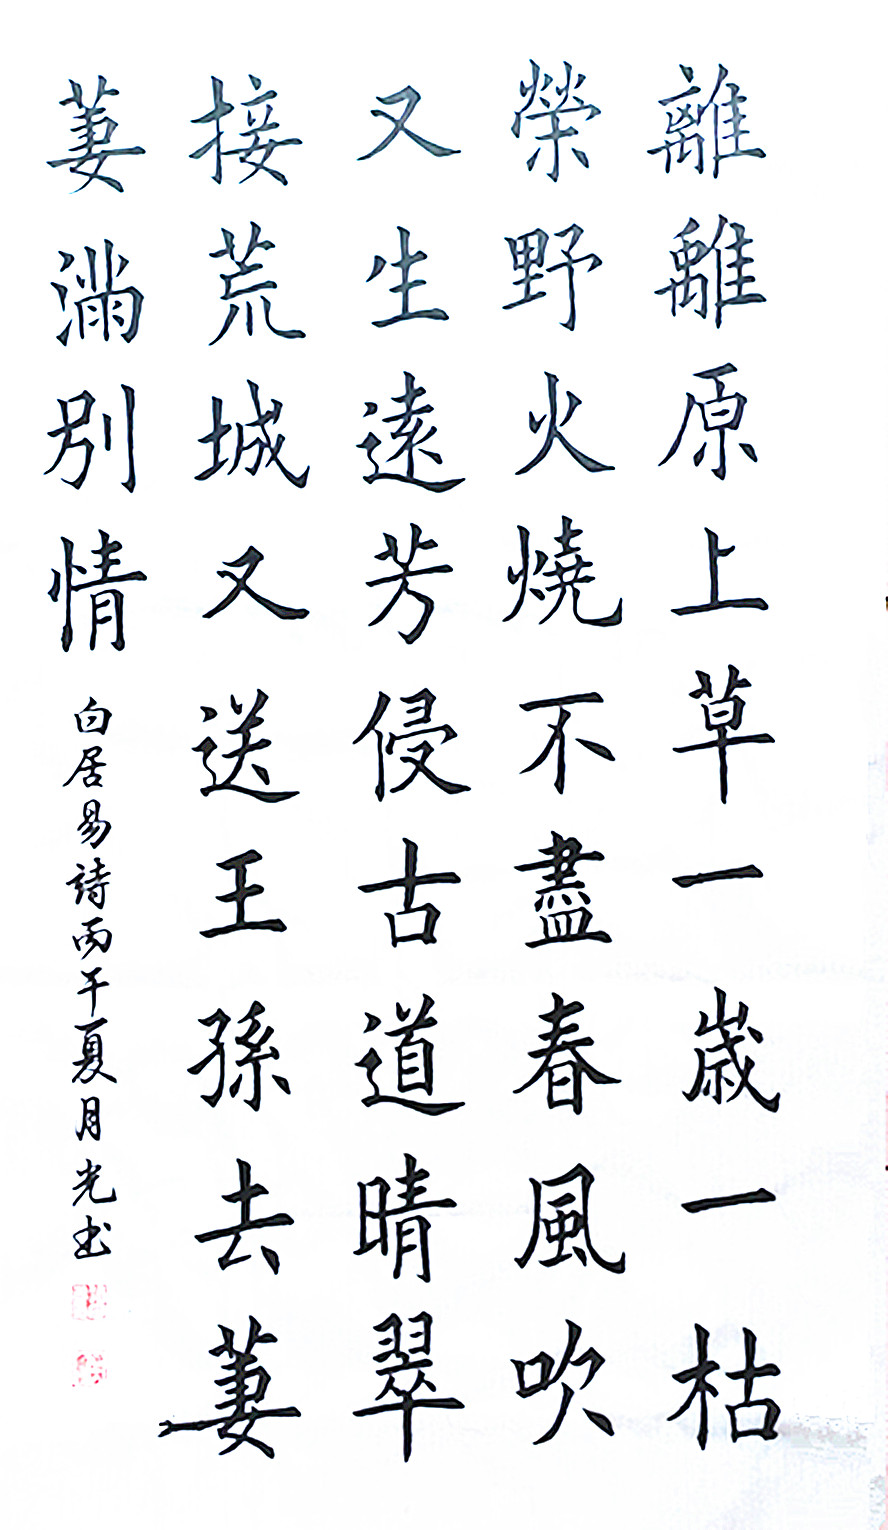 離離原上草一歲一枯
榮野火燒不盡春風吹
又生遠芳侵古道晴翠
接荒城又送王孫去萋
萋滿別情
白居易詩丙午夏月光书